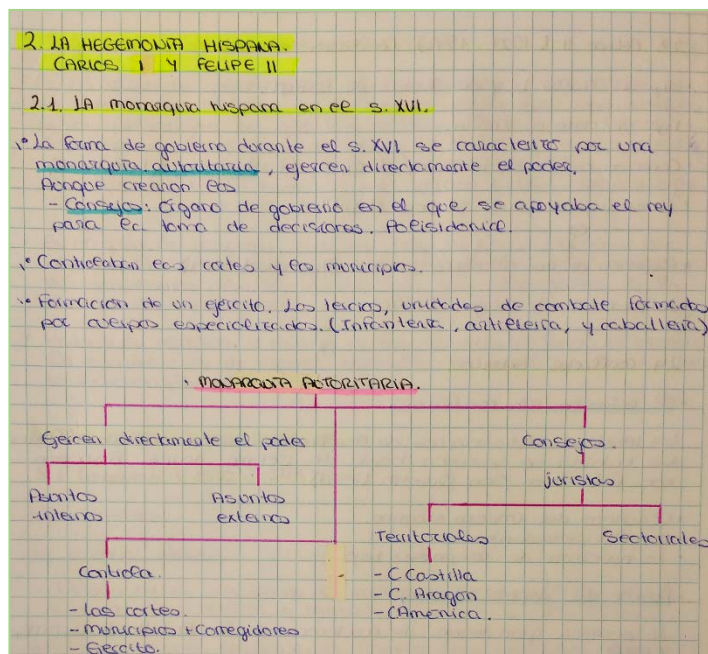 2. LA HEGEMONÍA HISPANA.
CARLOS I Y FELIPE II
2.1. LA monarquía hispana en el s. XVI.
• La forma de gobierno durante el s. XVI se caracterizó por una
monarquía autoritaria, ejercen directamente el poder.
Aunque crearon los
- Consejos: Órgano de gobierno en el que se apoyaba el rey
para la toma de decisiones. Polisidonice.
• Controlaban las cortes y los municipios.
• Formación de un ejército. Los tercios, unidades de combate formados
por cuerpos especializados. (Infantería, artillería, y caballería)
• MONARQUÍA AUTORITARIA.
Ejercen directamente el poder
Consejos.
juristas
Asuntos
internos
Asuntos
externos
Territoriales
Sectoriales
Controla.
- C Castilla
- C. Aragon
- C América.
- Las cortes.
- municipios + Corregidores
- Ejercito.